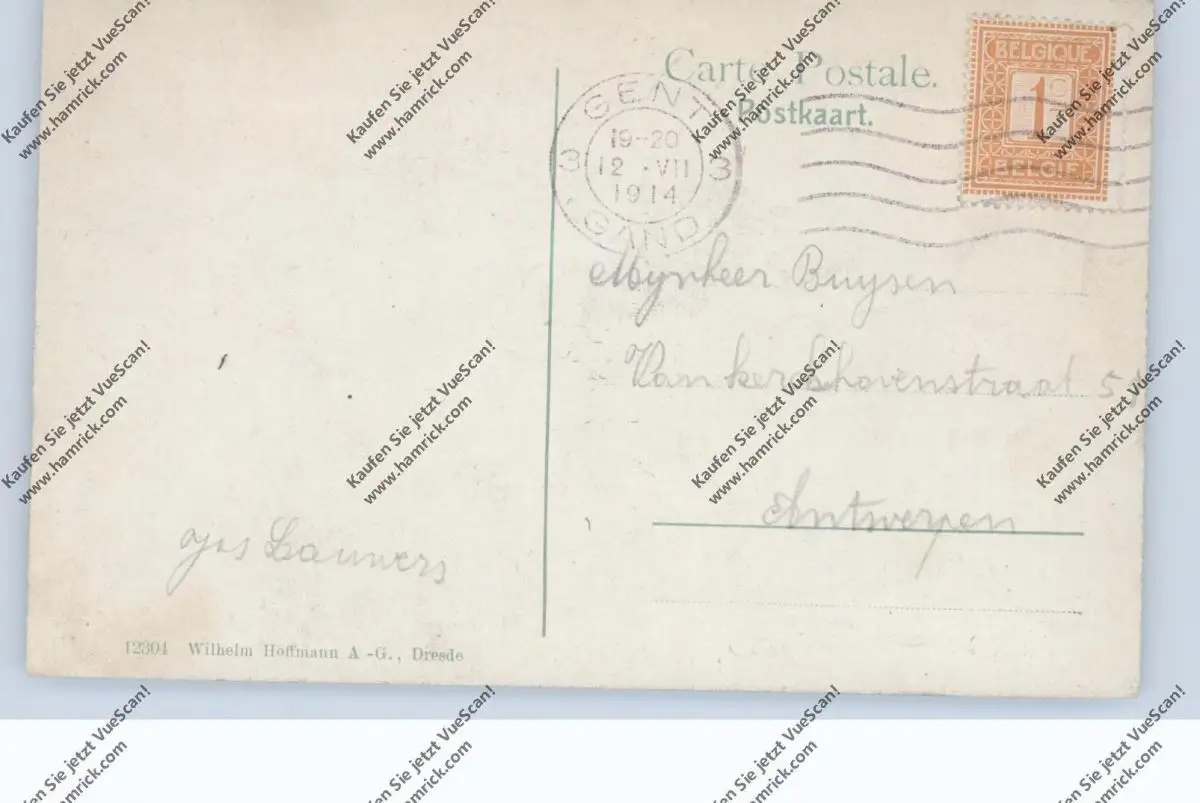 Carte Postale.
Postkaart.
BELGIQUE
1c
BELGIE
GENT
19-20
3 12 · VII 3
1914
GAND
Mynheer Buysen
Van kerckhovenstraat
Antwerpen
Lauwers
12304 Wilhelm Hoffmann A.-G., Dresde
Kaufen Sie jetzt VueScan!
www.hamrick.com
Kaufen Sie jetzt VueScan!
www.hamrick.com
Kaufen Sie jetzt VueScan!
www.hamrick.com
Kaufen Sie jetzt VueScan!
www.hamrick.com
Kaufen Sie jetzt VueScan!
www.hamrick.com
Kaufen Sie jetzt VueScan!
www.hamrick.com
Kaufen Sie jetzt VueScan!
www.hamrick.com
Kaufen Sie jetzt VueScan!
www.hamrick.com
Kaufen Sie jetzt VueScan!
www.hamrick.com
Kaufen Sie jetzt VueScan!
www.hamrick.com
Kaufen Sie jetzt VueScan!
www.hamrick.com
Kaufen Sie jetzt VueScan!
www.hamrick.com